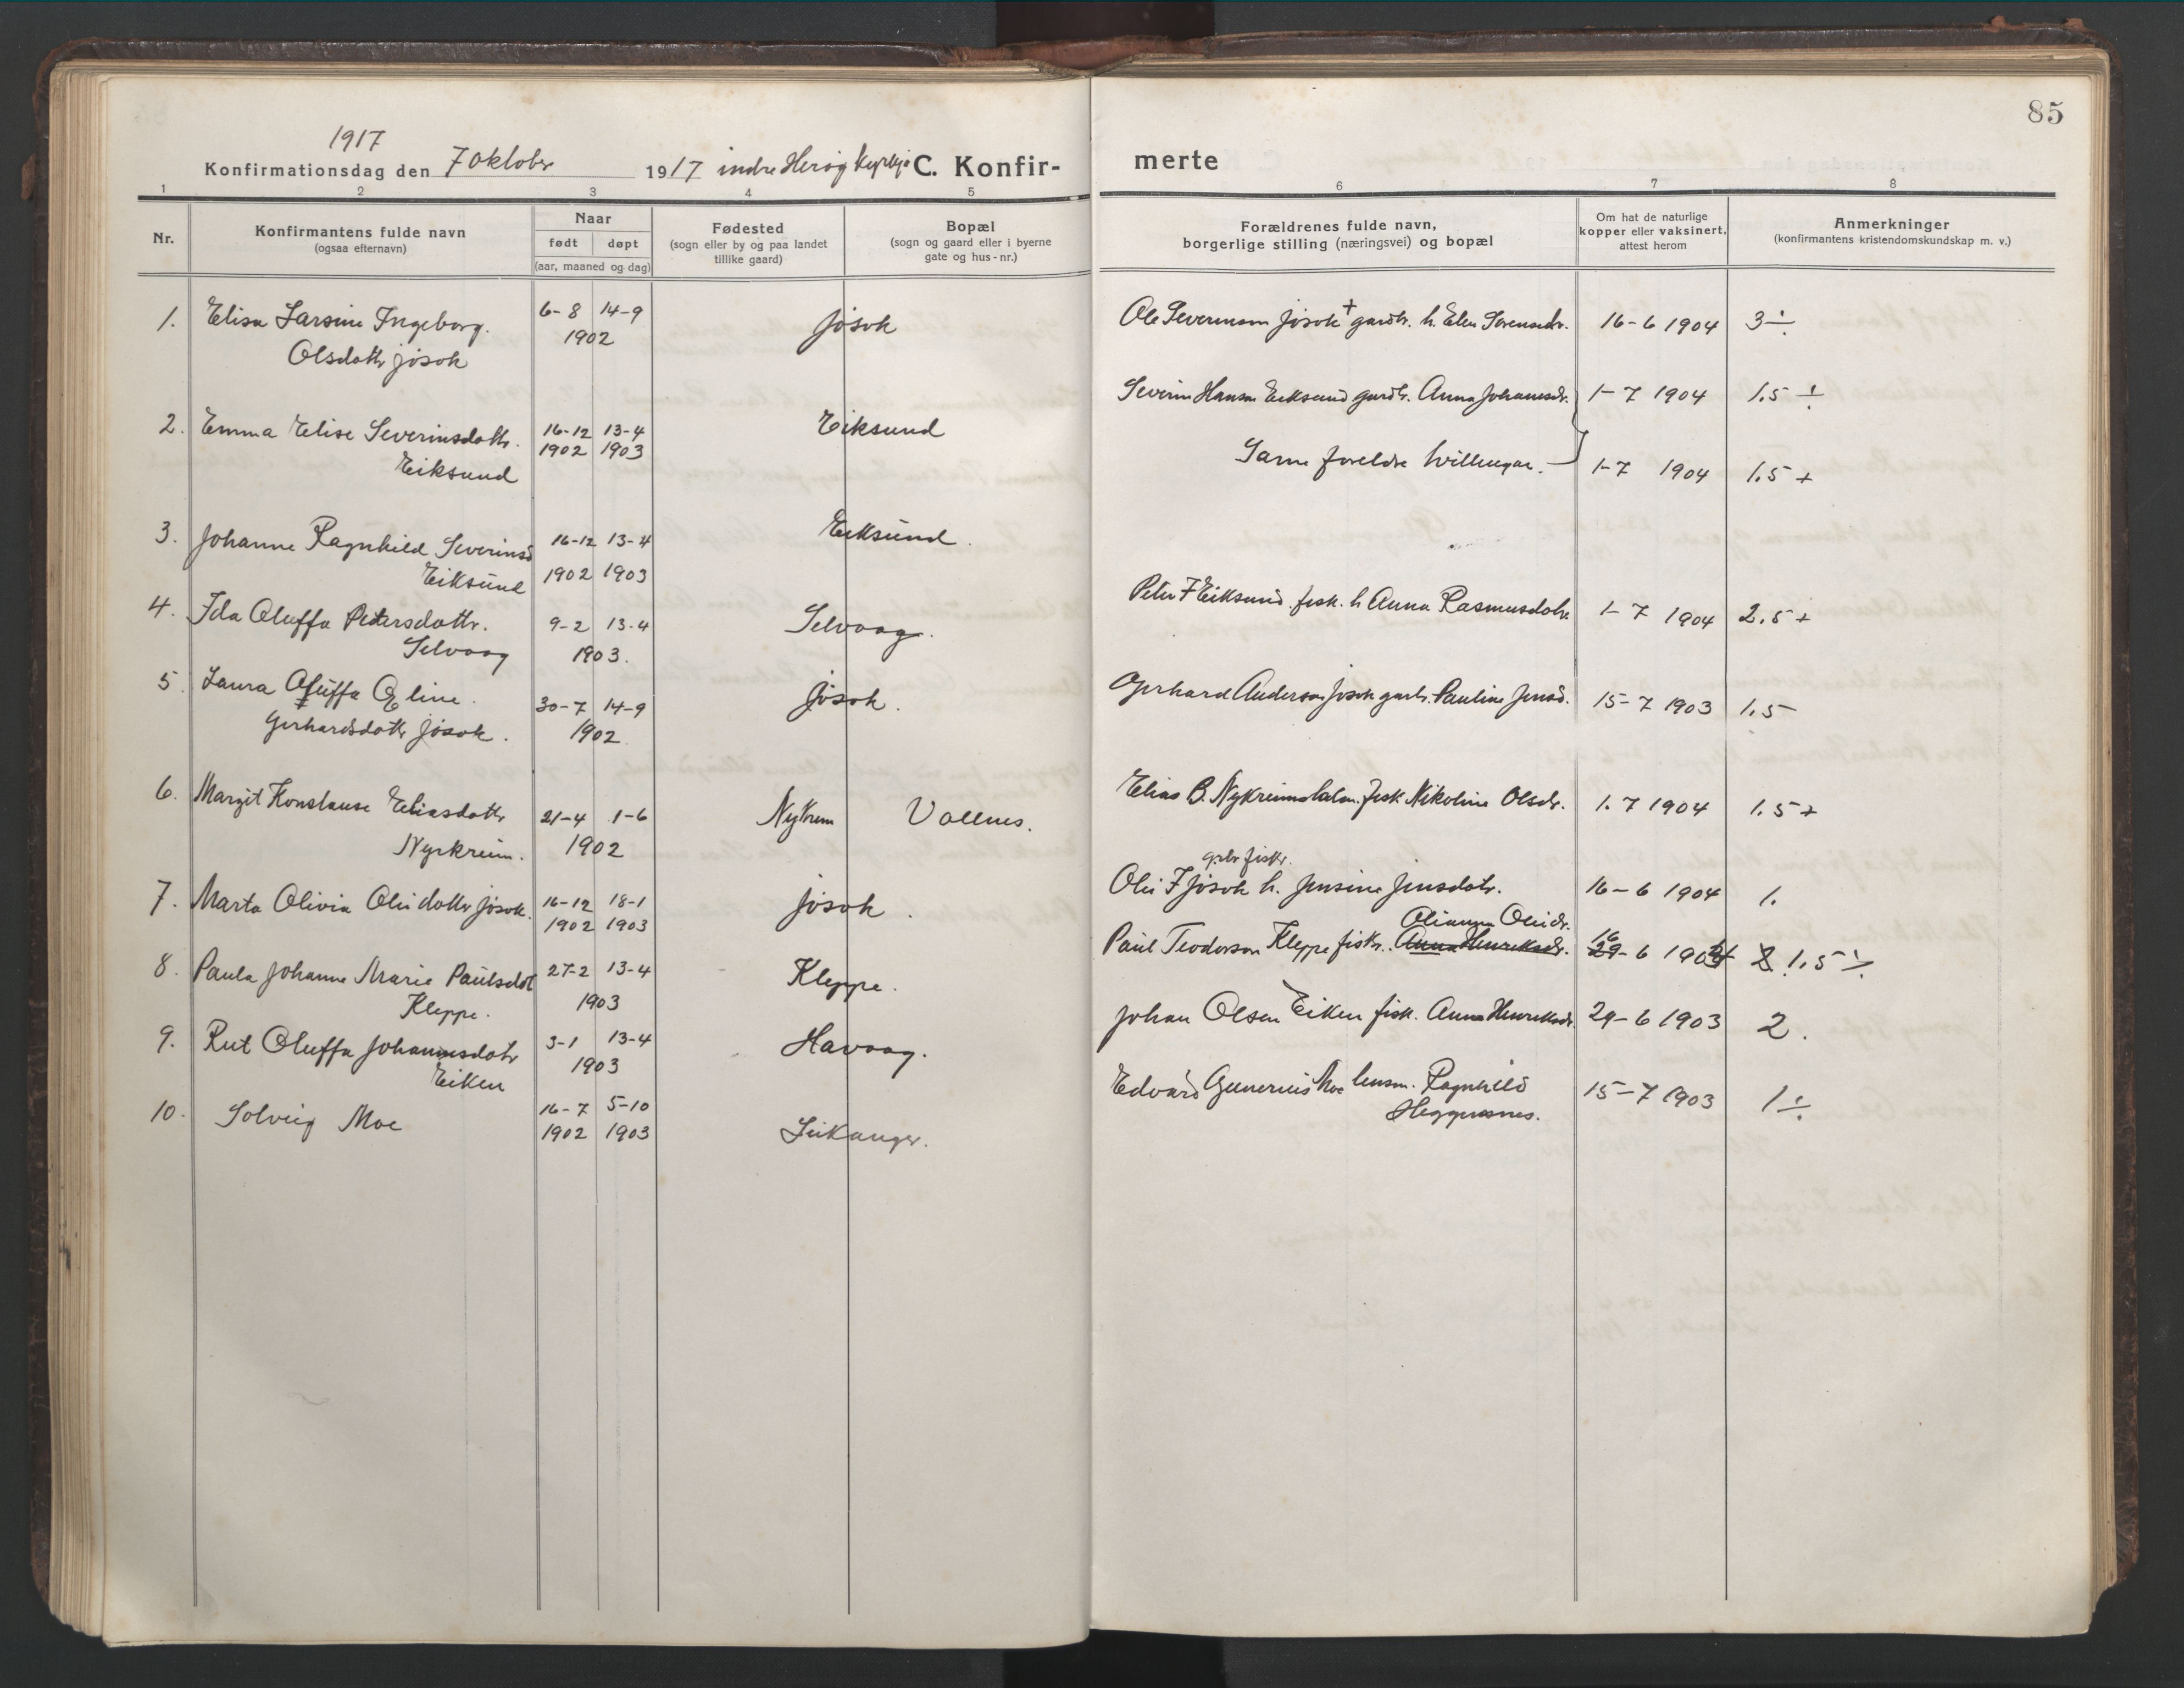 85
1917
Konfirmationsdag den 7 oktober 1917 indre Herøy kyrkje C. Konfirmerte
1 2 3 4 5 6 7 8
Nr.
Konfirmantens fulde navn
(ogsaa efternavn)
Naar
født døpt
(aar, maaned og dag)
Fødested
(sogn eller by og paa landet
tillike gaard)
Bopæl
(sogn og gaard eller i byerne
gate og hus-nr.)
Forældrenes fulde navn,
borgerlige stilling (næringsvei) og bopæl
Om hat de naturlige
kopper eller vaksinert,
attest herom
Anmerkninger
(konfirmantens kristendomskundskap m. v.)
1. Elisa Larsine Ingeborg. 6-8 14-9 Jøsok Ole Severinsen Jøsok + gardbr. h. Elen Sørensdr. 16-6 1904 3 ÷
Olsdottr Jøsok 1902
2. Emma Elise Severinsdottr. 16-12 13-4 Eiksund Severin Hansen Eiksund gardbr. Anna Johannesdr. 1-7 1904 1.5 ÷
Eiksund 1902 1903
3. Johanne Ragnhild Severinsd 16-12 13-4 Eiksund. Same foreldre tvillingar. 1-7 1904 1.5 +
Eiksund 1902 1903
4. Ida Oluffa Petersdottr. 9-2 13-4 Selvaag. Peter F Eiksund. fisk. h Anna Rasmusdotr. 1-7 1904 2.5 +
Selvaag 1903.
5. Laura Oluffa Eline. 30-7 14-9 Jøsok. Gerhard Anderson Jøsok garbr. Pauline Jensd. 15-7 1903 1.5
Gerhardsdottr Jøsok. 1902.
6. Margit Konstanse Eliasdottr 21-4 1-6 Nykrem Vollnes. Elias B. Nykreim fisk Nikoline Olsdr. 1.7 1904 1.5 +
Nyrkreim. 1902
grbr fiskr.
7. Marta Olivia Olidottr Jøsok. 16-12 18-1 Jøsok. Oli F Jøsok h. Jensine Jensdotr. 16-6 1904 1.
1902 1903
Olianna Olidr.
8. Paula Johanne Marie Paulsdot 27-2 13-4 Kleppe. Paul Teodorson Kleppe fiskr. Anna Henriksdr. 16 29-6 1904 2 1.5 ÷
Kleppe. 1903
9. Rut Oluffa Johannsdotr 3-1 13-4 Havaag. Johan Olsen Eiken fisk. Anna Henriksdr. 29-6 1903 2.
Eiken 1903
10. Solveig Moe 16-7 5-10 Leikanger. Edvard Gunerius Moe lensm. Ragnhild 15-7 1903 1 ÷
1902 1903 Heggesnes.